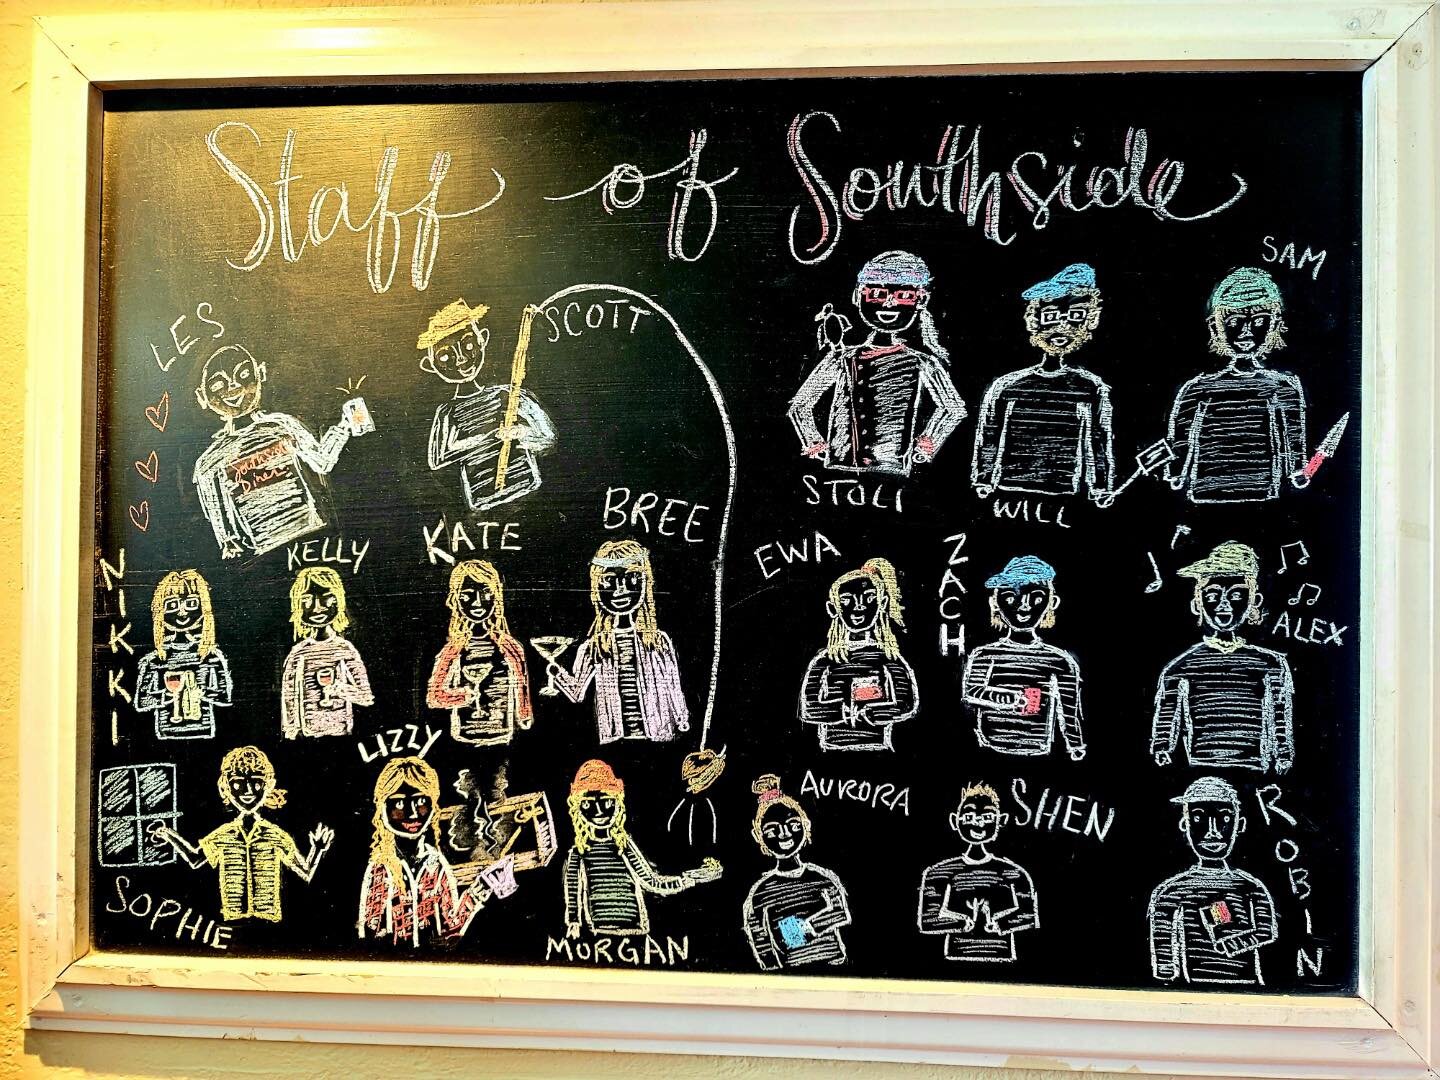 Staff of Southside
LES
SCOTT
STOLI
WILL
SAM
NIKKI
KELLY
KATE
BREE
EWA
ZACH
ALEX
SOPHIE
LIZZY
MORGAN
AURORA
SHEN
ROBIN